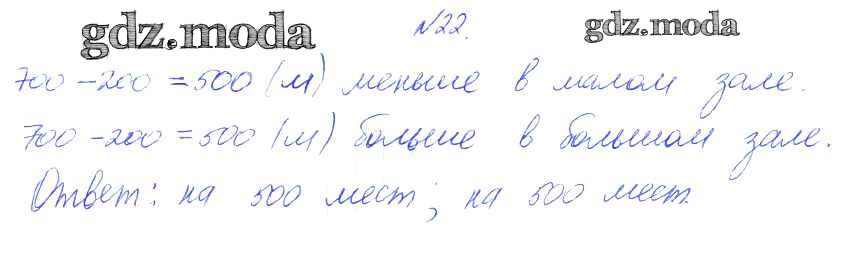 gdz.moda №22. gdz.moda
700 - 200 = 500 (м) меньше в малом зале.
700 - 200 = 500 (м) больше в большом зале.
Ответ: на 500 мест; на 500 мест.